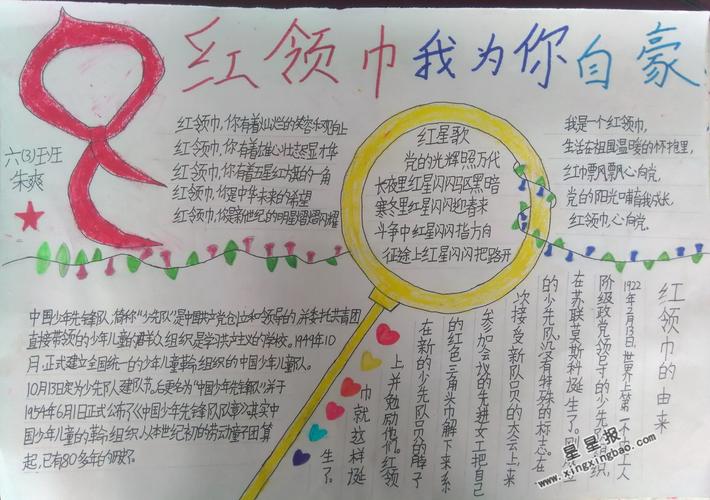 红领巾我为你自豪
六(3)班
朱爽
红领巾,你有着灿烂的笑容
红领巾,你有着雄心壮志显才华
红领巾,你有着五星红旗的一角
红领巾,你是中华未来的希望
红领巾,你是新世纪的明星熠熠闪耀
红星歌
党的光辉照万代
长夜里红星闪闪驱黑暗
寒冬里红星闪闪迎春来
斗争中红星闪闪指方向
征途上红星闪闪把路开
我是一个红领巾,
生活在祖国温暖的怀抱里,
红巾飘飘心向党,
党的阳光哺育我成长,
红领巾,心向党。
中国少年先锋队,简称"少先队"是中国共产党创立和领导的,并委托共青团
直接带领的少年儿童的群众组织是学习共产主义的学校。1949年10
月,正式建立全国统一的少年儿童革命组织的中国少年儿童队。
10月13日定为少先队建队节。
1954年6月1日正式公布了《中国少年先锋队队章》其实中
国少年儿童的革命组织,从本世纪初的劳动童子团算
起,已有80多年的历史了。
红领巾的由来
1922年2月13日,世界上第一个由工人
阶级政党领导的少先组织,
在苏联莫斯科诞生了。
的少先队没有特殊的标志在
次接受新队员的大会上,来
参加会议的先进女工把自己
的红色三角头巾解下来系
在新的少先队员的脖子
上,并勉励他们。红领
巾就这样诞
生了。
星星报
www.xingxingbao.com